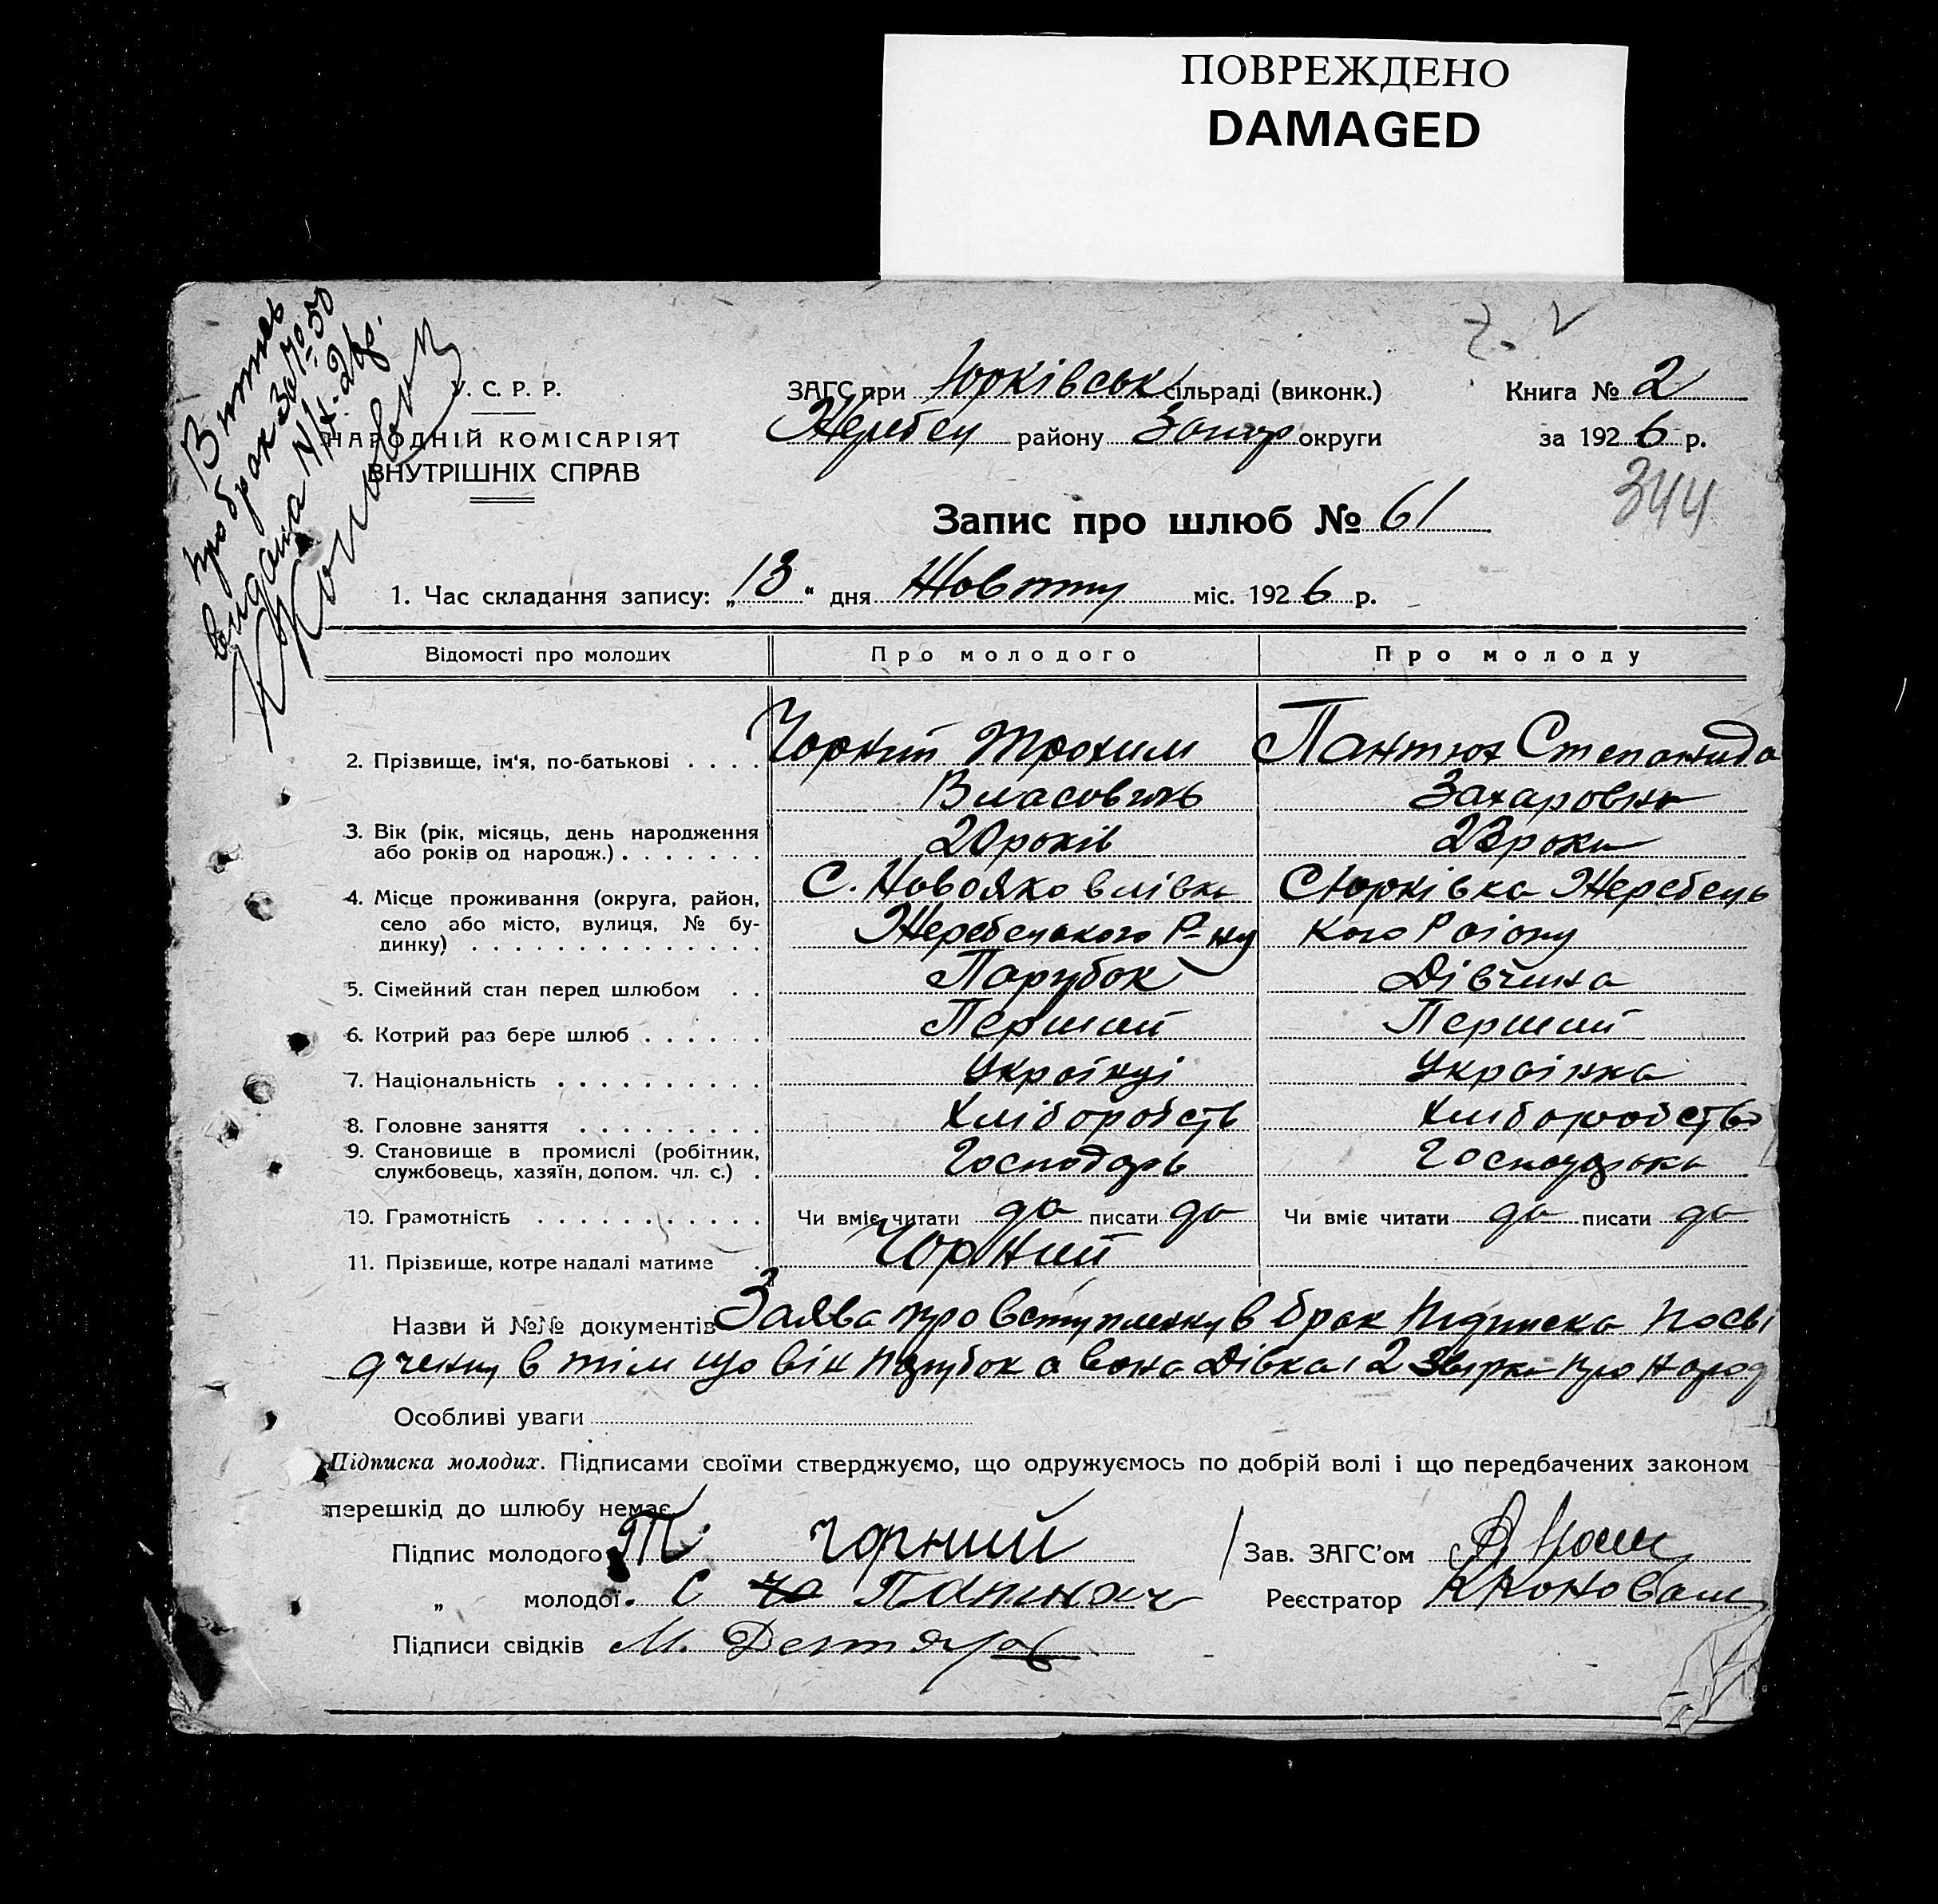 ПОВРЕЖДЕНО
DAMAGED
Витяг
про брак за № 50
видана
У. С. Р. Р.
НАРОДНІЙ КОМІСАРІЯТ
ВНУТРІШНІХ СПРАВ
ЗАГС при Юрківськ сільраді (виконк.)
Жеребец району Запор округи
Книга № 2
за 1926 р.
344
Запис про шлюб № 61
1. Час складання запису: „13“ дня Жовтну міс. 1926 р.
Відомості про молодих Про молодого Про молоду
2. Прізвище, ім'я, по-батькові . . . . Чорний Трохим Пантюх Степанида
Власович Захаровна
3. Вік (рік, місяць, день народження
або років од народж.) . . . . . . . 20 років 23 роки
4. Місце проживання (округа, район,
село або місто, вулиця, № бу-
динку) . . . . . . . . . . . . . .
С. Новояковлівка С Юрківка Жеребець
Жеребецького Р-ну кого Раіону
5. Сімейний стан перед шлюбом . . Парубок Дівчина
6. Котрий раз бере шлюб . . . . . . Перший Перший
7. Національність . . . . . . . . . . Українці Украінка
8. Головне заняття . . . . . . . . . Хліборобств Хлиборобство
9. Становище в промислі (робітник,
службовець, хазяїн, допом. чл. с.) . Господарь Господарька
10. Грамотність . . . . . . . . . . . Чи вміє читати да писати да Чи вміє читати да писати да
11. Прізвище, котре надалі матиме . Чорний
Назви й №№ документів Заява про вступленну в брак Підписка Посві
дченну в тім що він парубок а вона Дівка і 2 про Народ
Особливі уваги
Підписка молодих. Підписами своїми стверджуємо, що одружуємось по добрій волі і що передбачених законом
перешкід до шлюбу немає.
Підпис молодого Т. Чорний Зав. ЗАГС'ом
„ молодої. С Реєстратор К Коновал
Підписи свідків М. Дегтяров